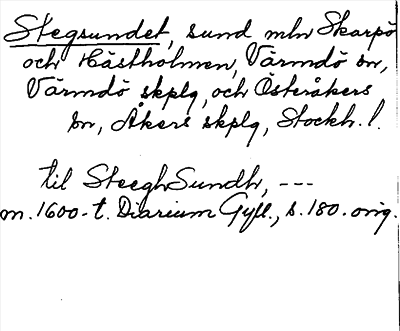 Stegsundet, sund mln Skarpö
och Hästholmen, Värmdö sn,
Värmdö skplg, och Österåkers
sn, Åkers skplg, Stockh. l.
til SteeghSundh, ---
m. 1600-t. Diarium Gyll., s. 180. orig.